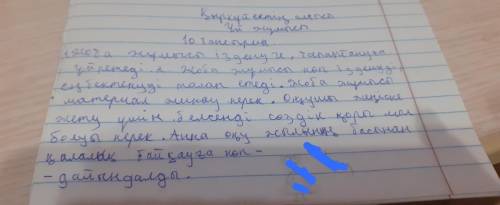 Үй жұмысы
10 тапсырма
Жоба жұмысы ізденуге, талаптануға
үйретеді. Жоба жұмысы көп ізденуді
еңбектенуді талап етеді. Жоба жұмысы
материал жинау керек. Оқушы
жету үшін белсенді сөздік қоры мол
болуы керек. Анна оқу жылының басынан
қалалық байқауға көп -
- дайындалды.